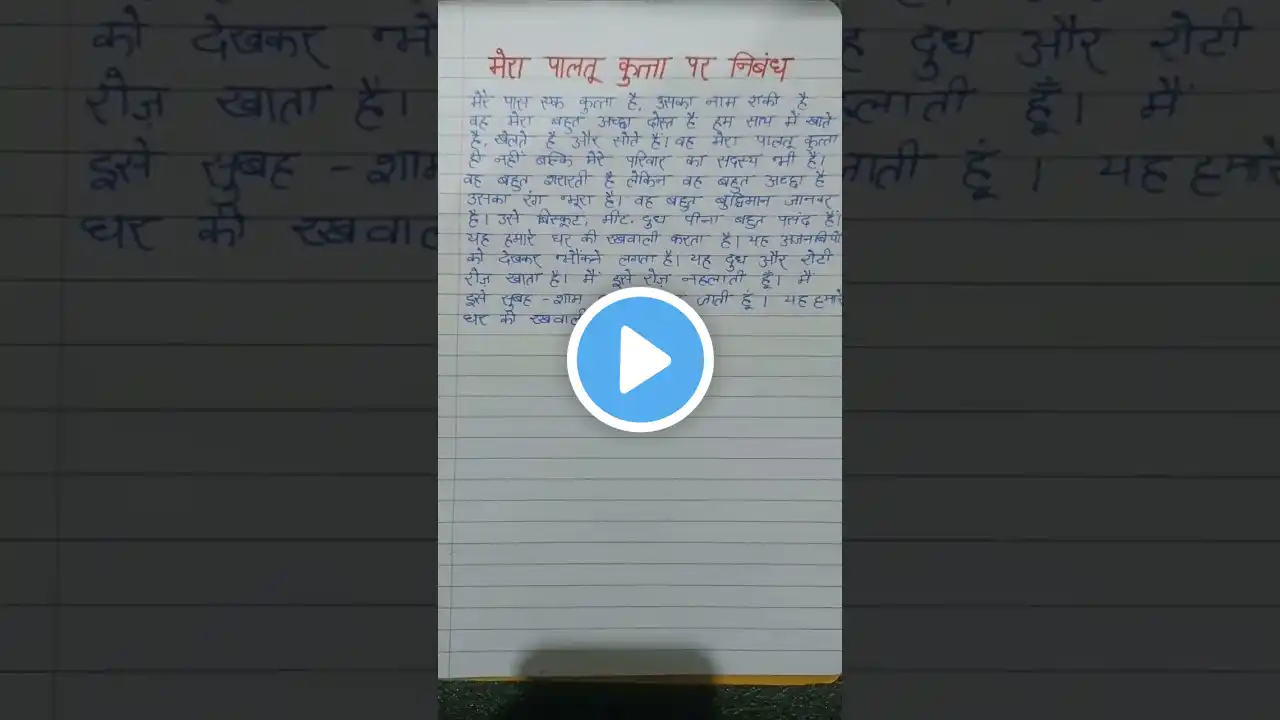 मेरा पालतू कुत्ता पर निबंध
मेरे पास एक कुत्ता है, उसका नाम रॉकी है
वह मेरा बहुत अच्छा दोस्त है हम साथ में खाते
है, खेलते है और सोते है। वह मेरा पालतू कुत्ता
ही नहीं बल्कि मेरे परिवार का सदस्य भी है।
वह बहुत शरारती है लेकिन वह बहुत अच्छा है
उसका रंग भूरा है। वह बहुत बुद्धिमान जानवर
है। उसे बिस्कूट, मीट, दुध पीना बहुत पसंद है।
यह हमारे घर की रखवाली करता है। यह अजनबियो
को देखकर भौंकने लगता है। यह दुध और रोटी
रोज़ खाता है। मैं इसे रोज़ नहलाती हूँ। मैं
इसे सुबह - शाम जाती हूं। यह हमारे
घर की रखवाली